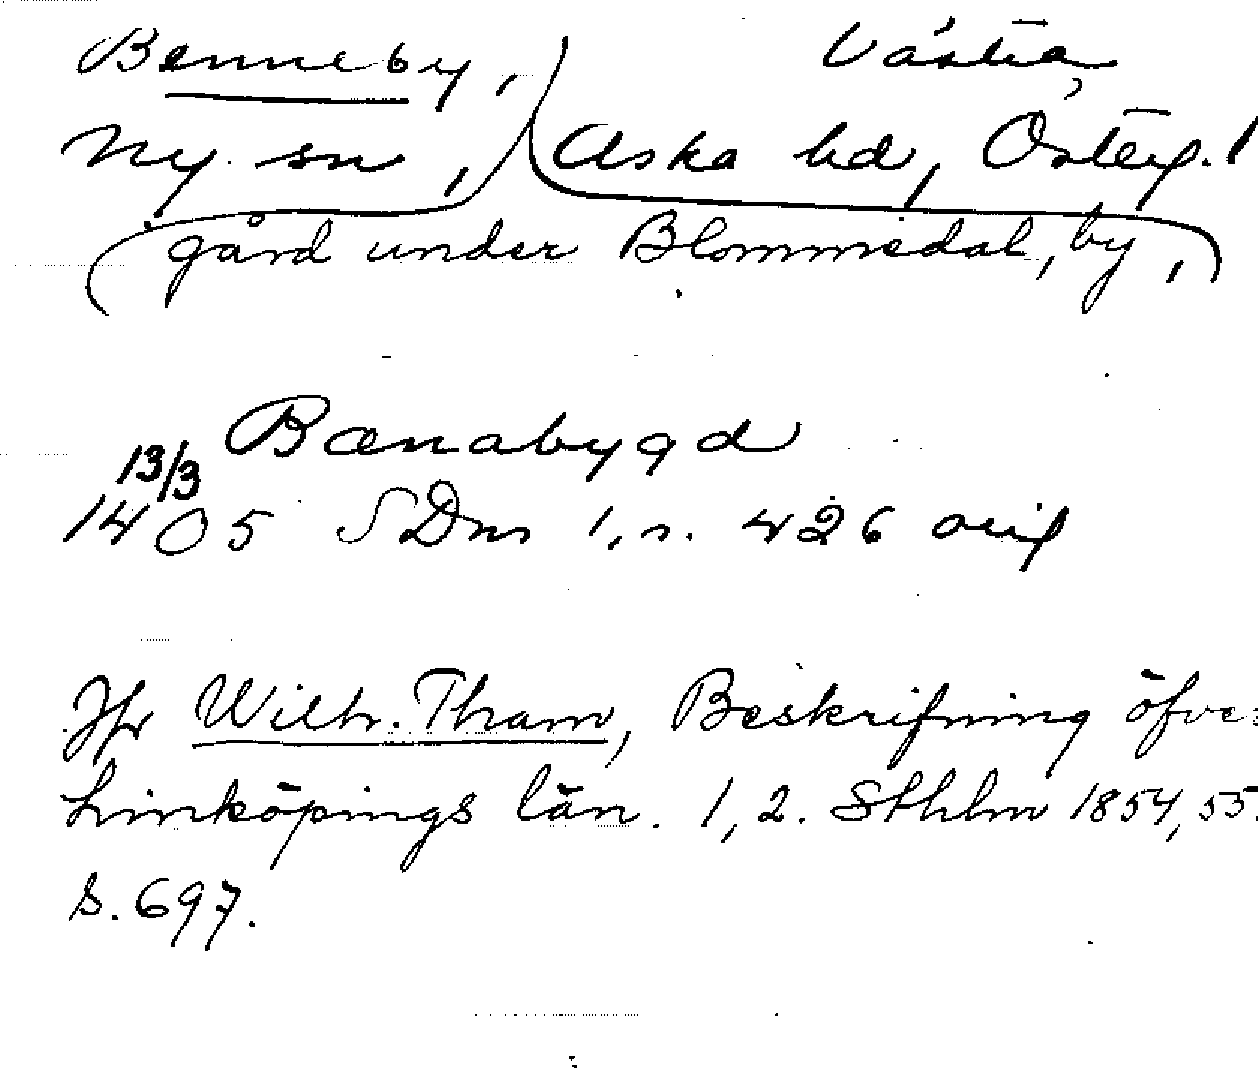 Benneby, Västra
Ny sn, Aska hd, Österg.l
gård under Blommedal, by,
Bænabygd
13/3
1405 SDns 1, s. 426 orig
Jfr Wilh. Tham, Beskrifning öfver
Linköpings län. 1,2. Sthlm 1854,55.
S. 697.